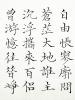 自由悵寥廓問
蒼茫大地誰主
沉浮攜來百侶
曾游憶往昔崢